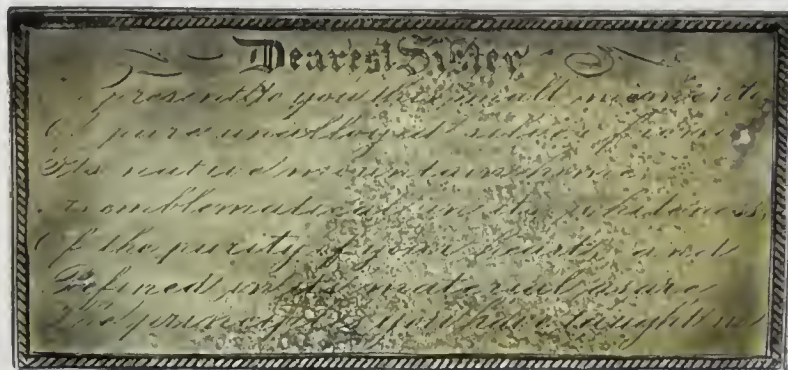 Dearest Sister
I present to you this small memento
Of pure unalloyed silver from
Its native mountain home
As emblematical in its whiteness
Of the purity of your heart, and
Refined in its material as are
The you have taught me